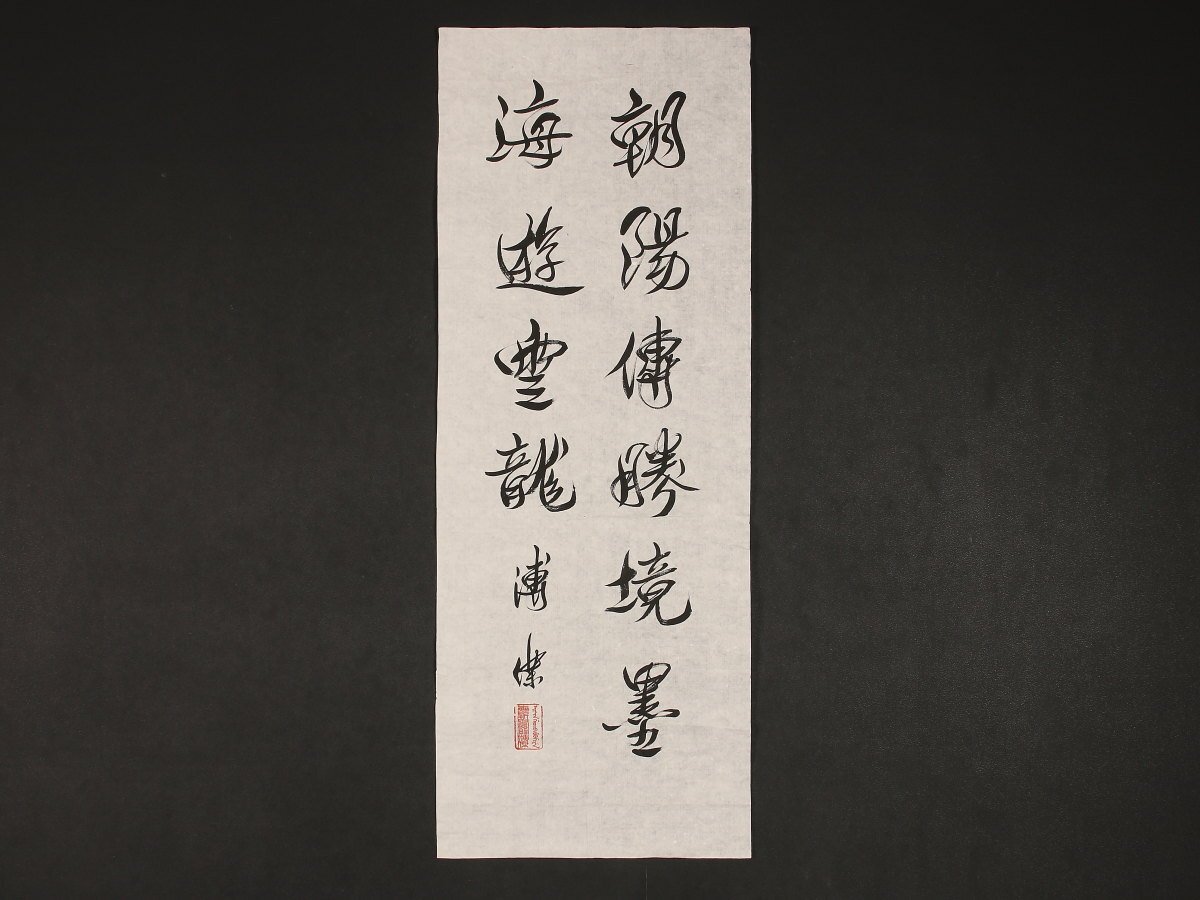 朝陽傳勝境墨
海遊雲龍
溥傑